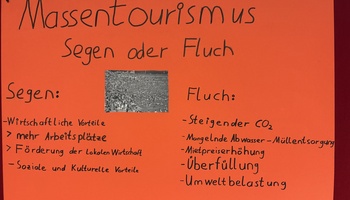 Massentourismus
Segen oder Fluch
Segen:
-Wirtschaftliche Vorteile
> mehr Arbeitsplätze
> Förderung der Lokalen Wirtschaft
- Soziale und Kulturelle Vorteile
Fluch:
-Steigender CO2
-Mangelnde Abwasser-Müllentsorgung
-Mietpreiserhöhung
-Überfüllung
-Umweltbelastung